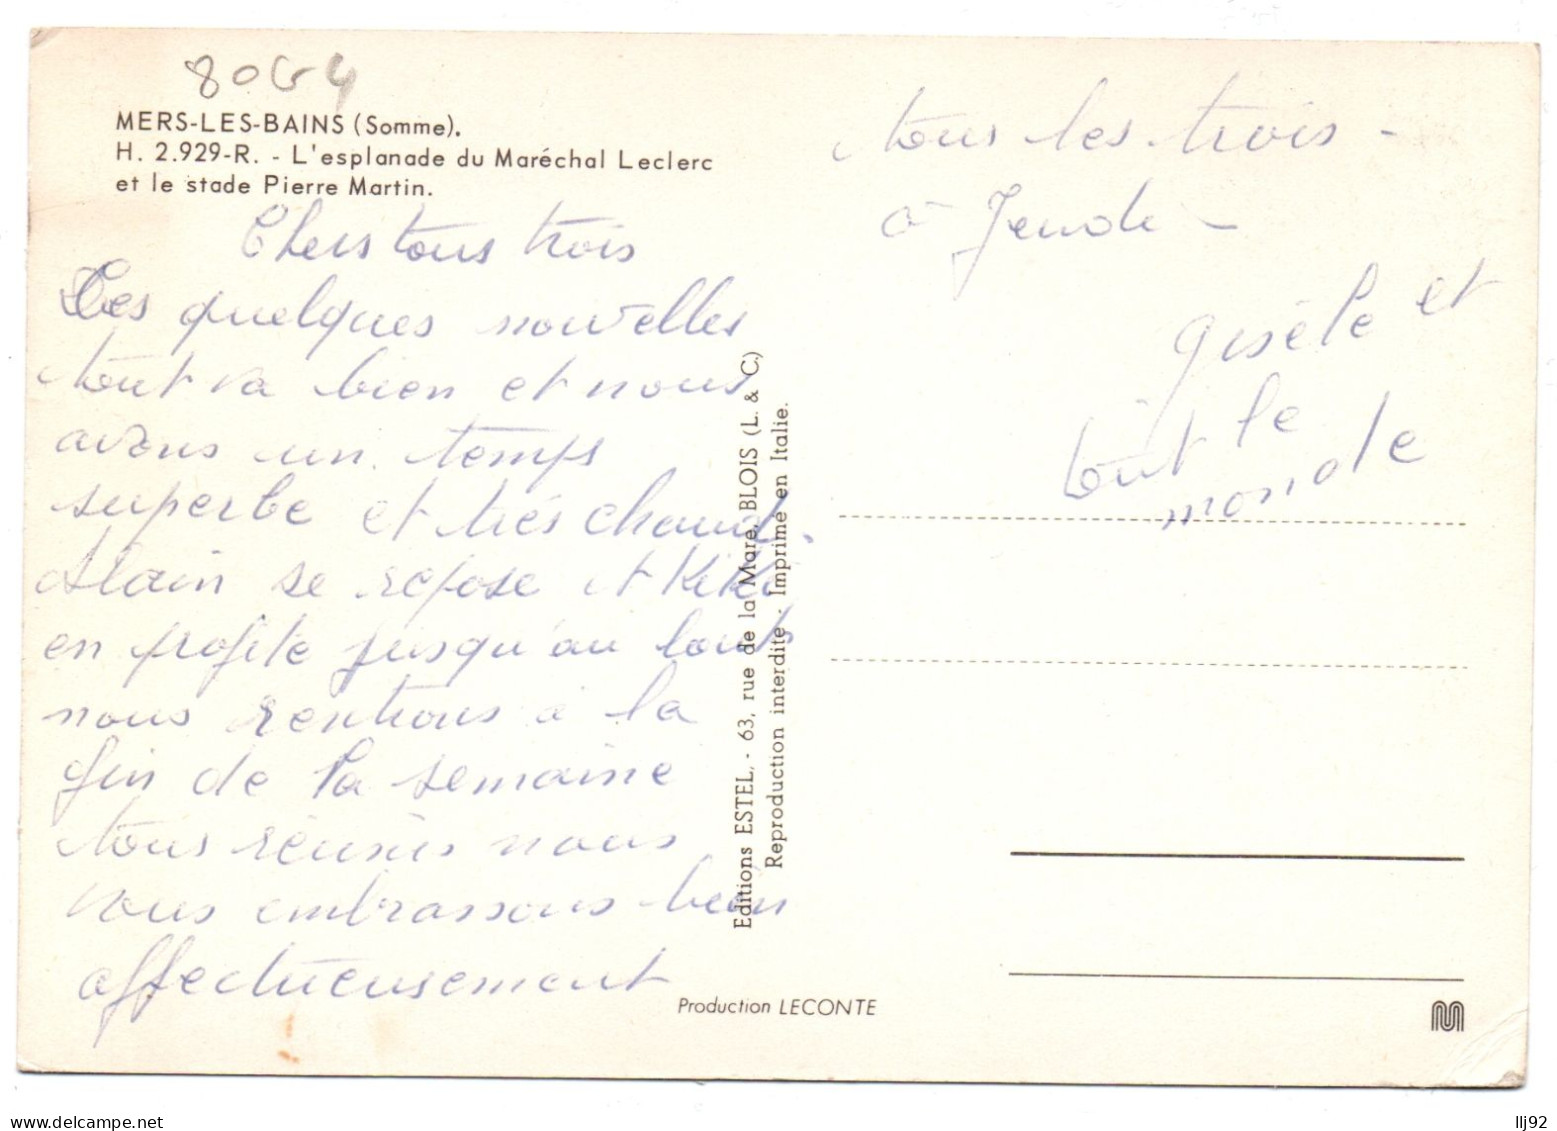 80G4
MERS-LES-BAINS (Somme).
H. 2.929-R. - L'esplanade du Maréchal Leclerc
et le stade Pierre Martin.
Chers tous trois
Ces quelques nouvelles
tout va bien et nous
avons un temps
superbe et très chaud.
Alain se repose et Kiki
en profite jusqu'au bout
nous rentrons à la
fin de la semaine
tous réunis nous
vous embrassons bien
affectueusement
tous les trois -
à
gisèle et
tout le
monde
Editions ESTEL, - 63, rue de la Mare, BLOIS (L. & C.)
Reproduction interdite - Imprimé en Italie.
Production LECONTE
www.delcampe.net
llj92